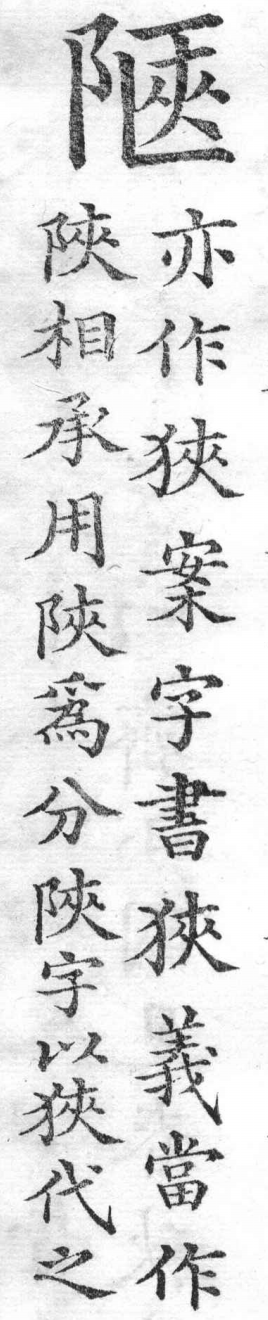 陿
亦作狹案字書狹義當作
陜相承用陜爲分陜字以狹代之